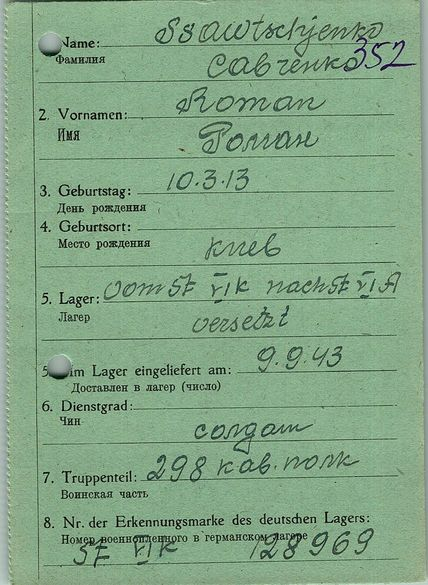 Name: Ssawtschjenko
Фамилия Савченко 352
2. Vornamen: Roman
Имя Роман
3. Geburtstag: 10.3.13
День рождения
4. Geburtsort:
Место рождения киев
5. Lager: vom St VI K nach St VI A
Лагер versetzt
5. Im Lager eingeliefert am: 9.9.43
Доставлен в лагер (число)
6. Dienstgrad:
Чин солдат
7. Truppenteil: 298 кав. полк
Воинская часть
8. Nr. der Erkennungsmarke des deutschen Lagers:
Номер военнопленного в германском лагере
St VI K 128969